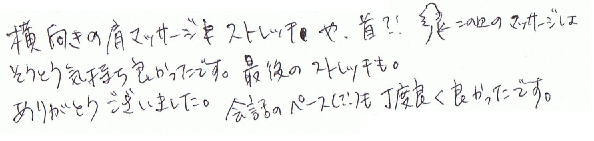 横向きの肩マッサージやストレッチや、首?! この辺のマッサージは
そうとう気持ち良かったです。最後のストレッチも。
ありがとうございました。会話のペース(?!)も丁度良く良かったです。